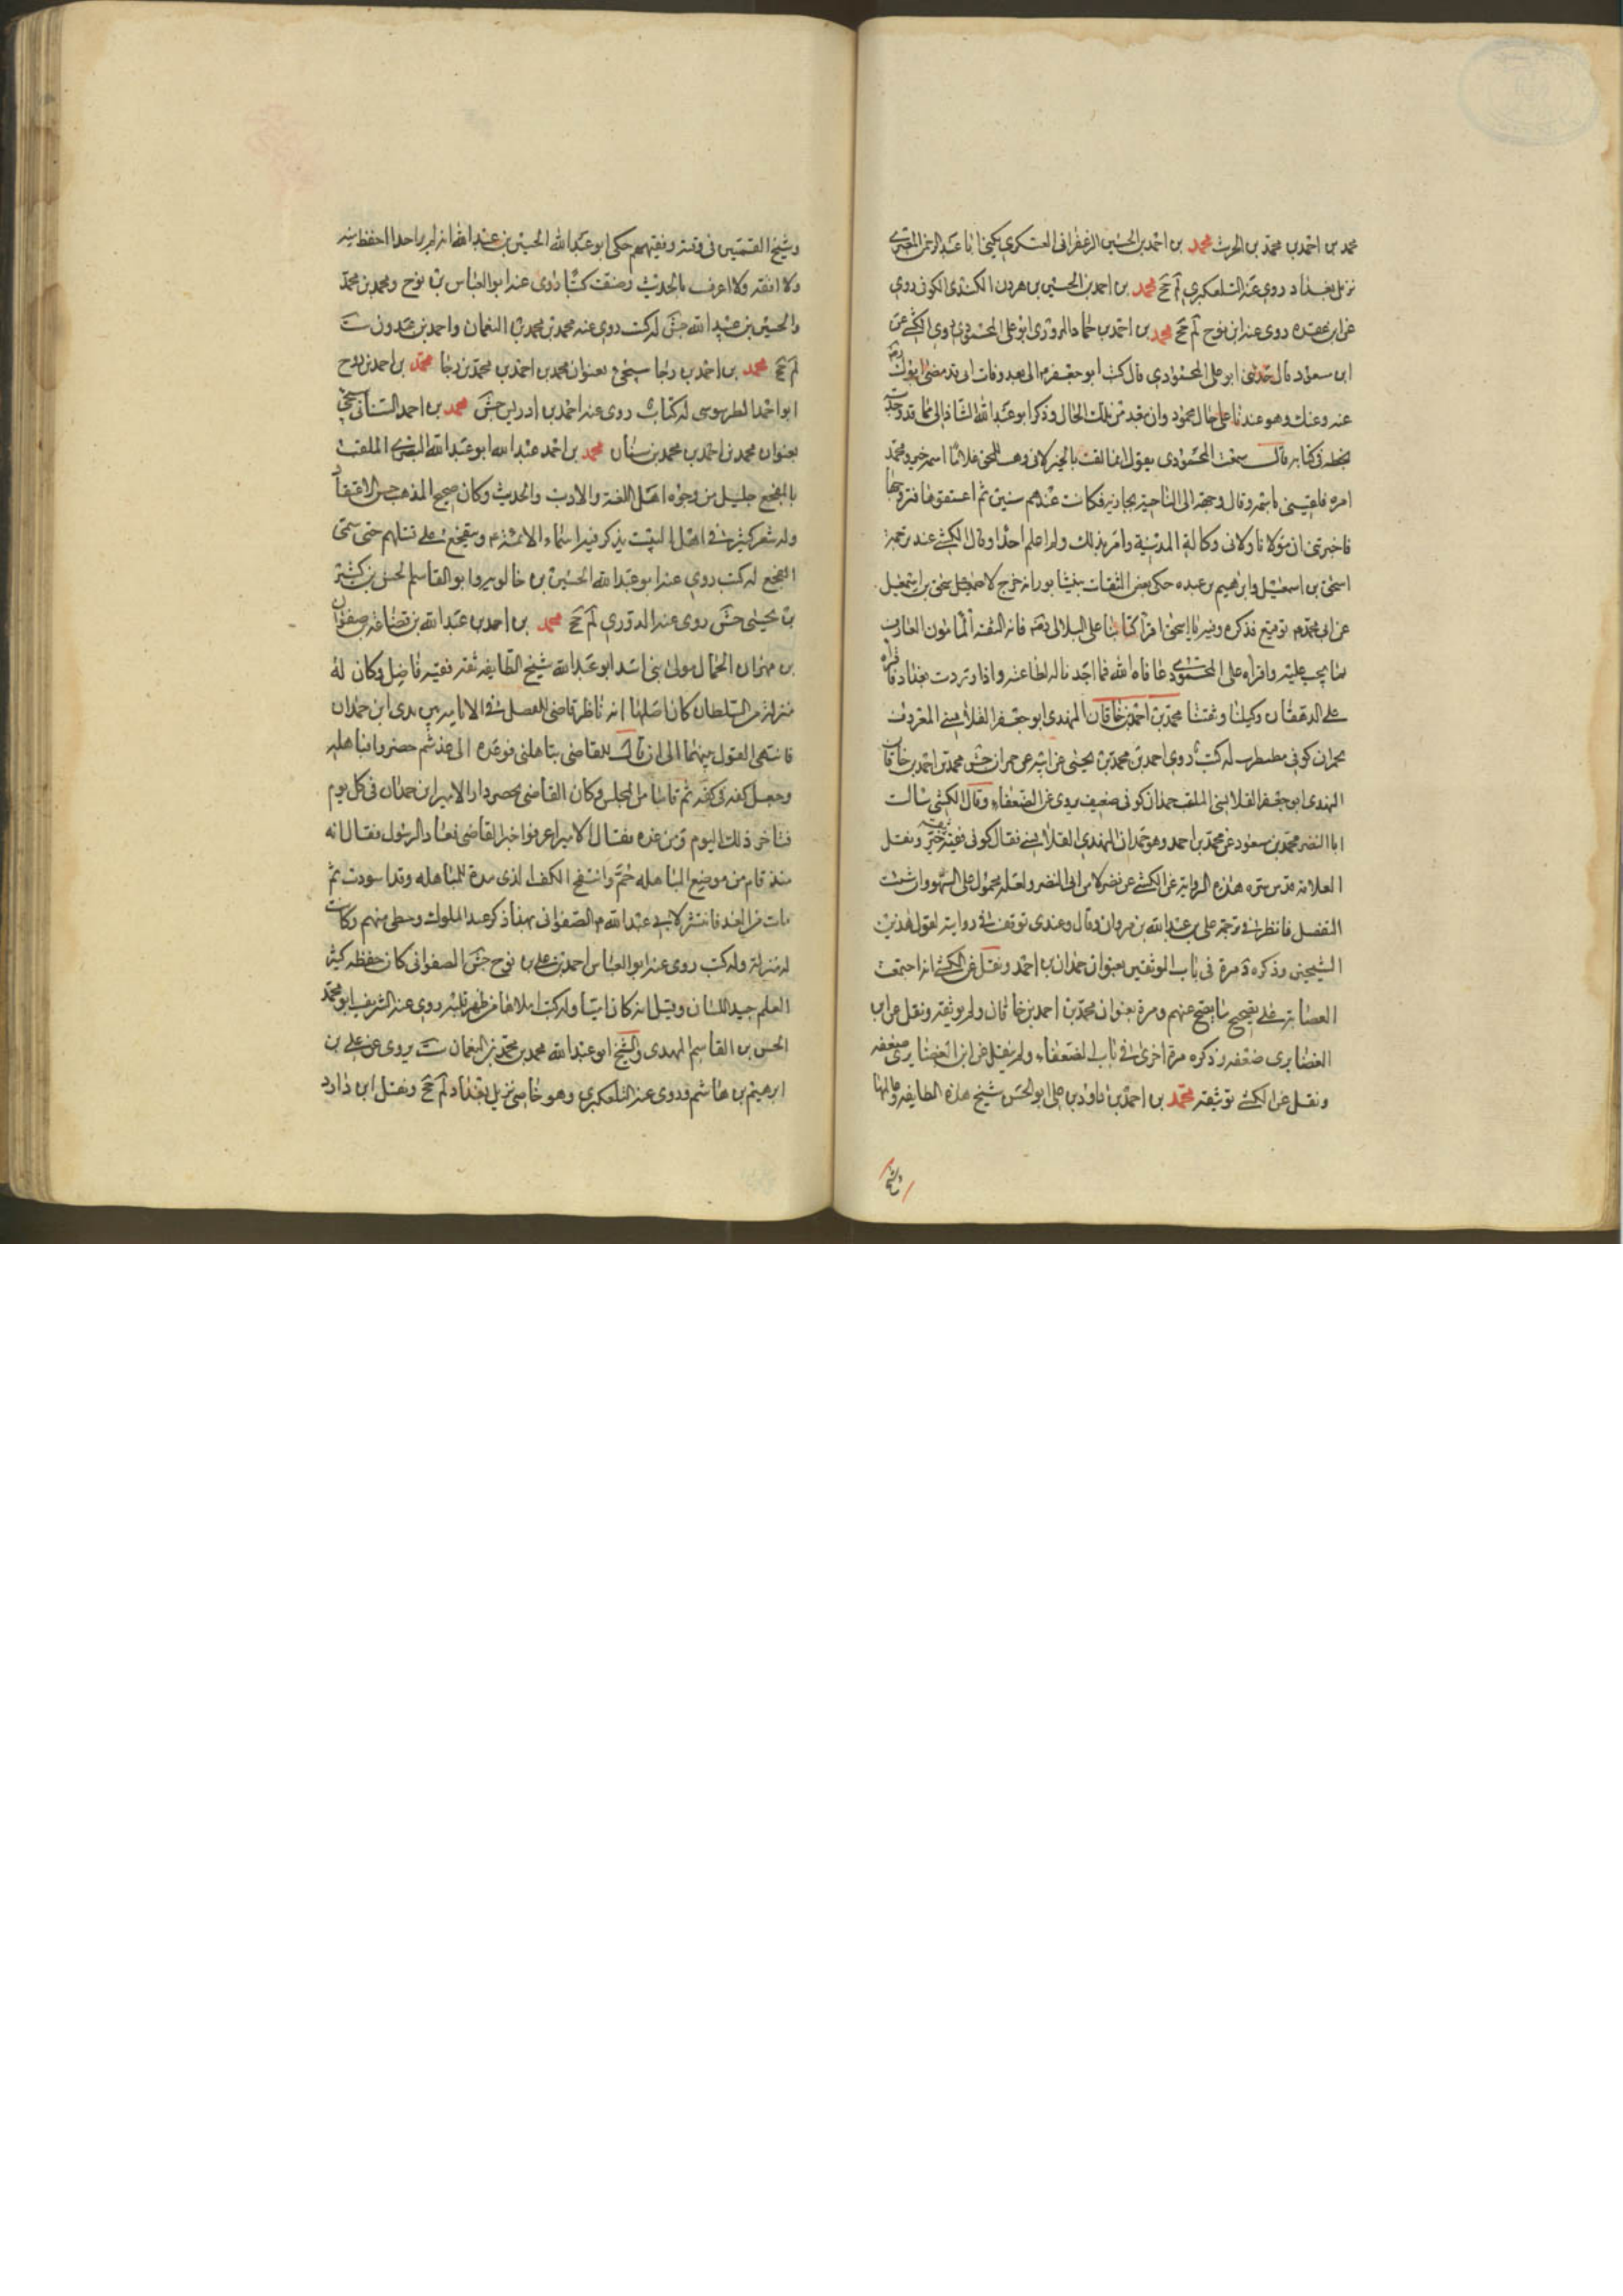 محمد بن احمد بن محمد بن الحرث محمد بن احمد بن الحسين الزعفرانى العسكرى يكنى ابا عبد الرحمن المقرى
نزيل بغداد روى عنه التلعكبرى لم جخ محمد بن احمد بن الحسين بن هرون الكندى الكوفى روى
عن ابن عقده روى عنه ابن نوح لم جخ محمد بن احمد بن حماد المروزى ابو على المحمودى روى الكشى عن
ابن مسعود قال حدثنى ابو على المحمودى قال كتب ابو جعفر م الى بعد وفات ابى قد مضى ابوك رضى
عنه وعنك وهو عندنا على حال محمود وان بقيد من تلك الحال وذكر ابو عبد الله الشاذانى مما قد وجدت
بخطه فى كتابه قال سمعت المحمودى يقول انما لقب بالخير لانى وهبت للحق غلاما اسمه خير ومحمد
امره فلقبنى باسمه وقال وجهت الى الناحية بجارية فكانت عندهم سنين ثم اعتقوها فتزوجتها
فاخبرتنى ان مولانا ولانى وكالة المدينة وامر بذلك ولم اعلم احدا وقال الكشى عند ترجمة
اسحق بن اسمعيل وابراهيم بن عبده حكى بعض الثقات بنيشابور انه خرج لاسحق بن اسمعيل
عن ابى محمد م توقيع فذكره وفيه يا اسحق اقرأ كتابنا على البلالى رضى الله عنه فانه الثقة المأمون العارف
بما يجب عليه واقراه على المحمودى عافاه الله فما احمدنا له لطاعته واذا وردت بغداد فاقراه
على الدهقان وكيلنا وثقتنا محمد بن احمد بن خاقان النهدى ابو جعفر القلانسى المعروف
بحمدان كوفى مضطرب له كتب روى احمد بن محمد بن يحيى عن ابيه عن حمران جش محمد بن احمد بن خاقان
النهدى ابو جعفر القلانسى الملقب حمدان كوفى ضعيف يروى عن الضعفاء وقال الكشى سالت
ابا النضر محمد بن مسعود عن محمد بن احمد وهو حمدان النهدى القلانسى فقال كوفى فقيه ثقة خير ونقل
العلامة قدس سره هذه الرواية عن الكشى عن نضر لا من ابى النضر ولعله محمول على السهو وان شئت
التفصل فانظر فى ترجمة على بن عبد الله بن مروان وقال وعندى توقف فى روايته لقول هذين
الشيخين وذكره د مرة فى باب الموثقين بعنوان حمدان بن احمد ونقل عن الكشى انه اجتمعت
العصابة على تصحيح ما يصح عنهم ومرة بعنوان محمد بن احمد بن خاقان ولم يوثقه ونقل عن ابن
الغضايرى ضعفه وذكره مرة اخرى فى باب الضعفاء ولم ينقل عن ابن الغضايرى ضعفه
ونقل عن الكشى توثيقه محمد بن احمد بن داود بن على ابو الحسن شيخ هذه الطايفة وعالمها
وشيخ
وشيخ القميين فى وقته وفقيههم حكى ابو عبد الله الحسين بن عبد الله انه لم ير احدا احفظ منه
ولا افقه ولا اعرف بالحديث وصنف كتبا روى عنه ابو العباس بن نوح ومحمد بن محمد
والحسين بن عبيد الله جش له كتب روى عنه محمد بن محمد بن النعمان واحمد بن عبدون ست
لم جخ محمد بن احمد بن رجا سيجئ بعنوان محمد بن احمد بن محمد بن رجا محمد بن احمد بن روح
ابو احمد الطرسوسى له كتاب روى عنه احمد بن ادريس جش محمد بن احمد السنانى سيجئ
بعنوان محمد بن احمد بن محمد بن سنان محمد بن احمد عبد الله ابو عبد الله البصرى الملقب
بالمفجع جليل من وجوه اهل اللغة والادب والحديث وكان صحيح المذهب حسن الاعتقاد
وله شعر كثير فى اهل البيت يذكر فيه اسماء الائمة عم ويتفجع على قتلهم حتى سمى
المفجع له كتب روى عنه ابو عبد الله الحسين بن خالويه وابو القاسم الحسن بن بشر
بن يحيى جش روى عنه الدورى لم جخ محمد بن احمد بن عبد الله بن قضاعه بن صفوان
بن مهران الجمال مولى بنى اسد ابو عبد الله شيخ الطايفه ثقه فقيه فاضل وكان له
منزلة من السلطان كان اصلها انه ناظر قاضى الموصل فى الامامه بين يدى ابن حمدان
فانتهى القول بينهما الى ان قال للقاضى تباهلنى فوعده الى غد ثم حضر وا فباهله
وجعل كفه فى كفه ثم قاما من المجلس وكان القاضى يحضر دار الامير ابن حمدان فى كل يوم
فتاخر ذلك اليوم ومن غده فقال الامير اعرفوا خبر القاضى فعاد الرسول فقال انه
منذ قام من موضع المباهله حم وانتفخ الكف الذى مده للمباهله وقد اسودت ثم
مات من الغد فانتشر لابى عبد الله م الصفوانى بهذا ذكر عند الملوك وحظى منهم وكانت
له منزلة وله كتب روى عنه ابو العباس احمد بن على بن نوح جش الصفوانى كان حفظه كثير
العلم جيد اللسان وقيل انه كان اميا وله كتب املاها من ظهر قلبه روى عنه الشريف ابو محمد
الحسن بن القاسم المهدى والشيخ ابو عبد الله محمد بن محمد بن النعمان ست يروى عن على بن
ابرهيم بن هاشم وروى عنه التلعكبرى وهو خاصى نزيل بغداد لم جخ ونقل ابن داود